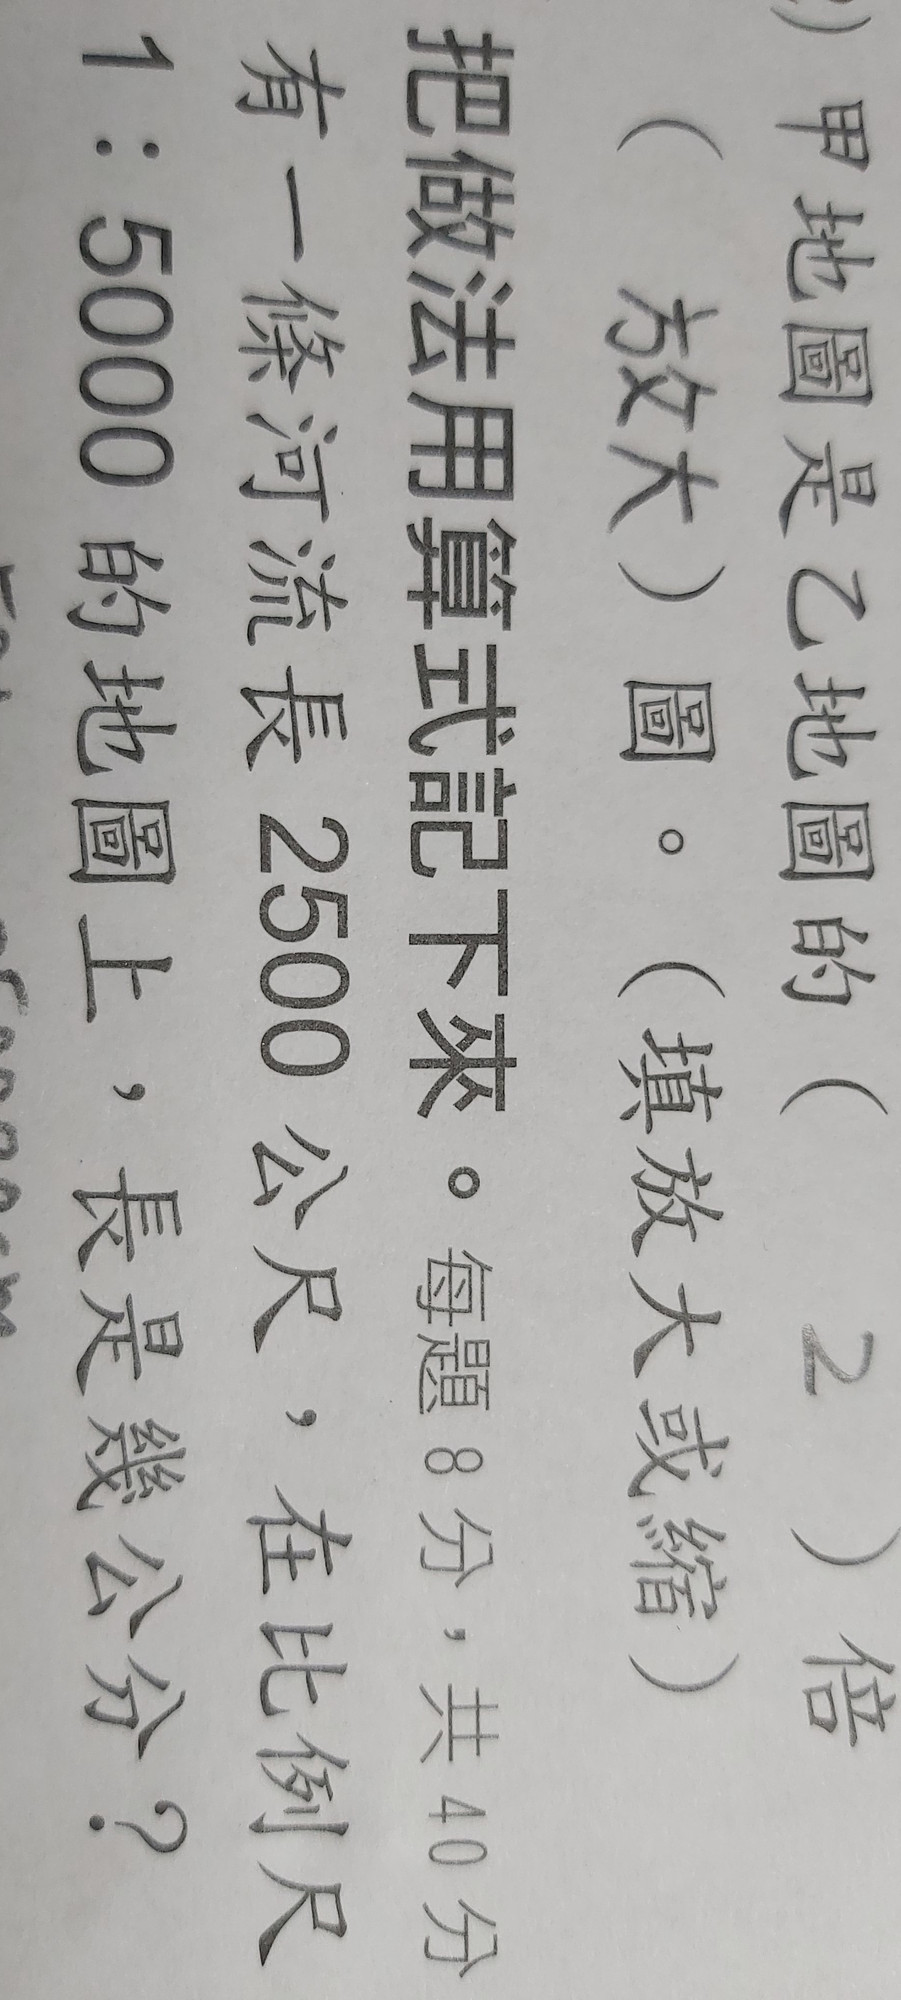 )甲地圖是乙地圖的( 2 )倍
( 放大)圖。(填放大或縮)
把做法用算式記下來。每題8分，共40分
有一條河流長2500公尺，在比例尺
1：5000的地圖上，長是幾公分？